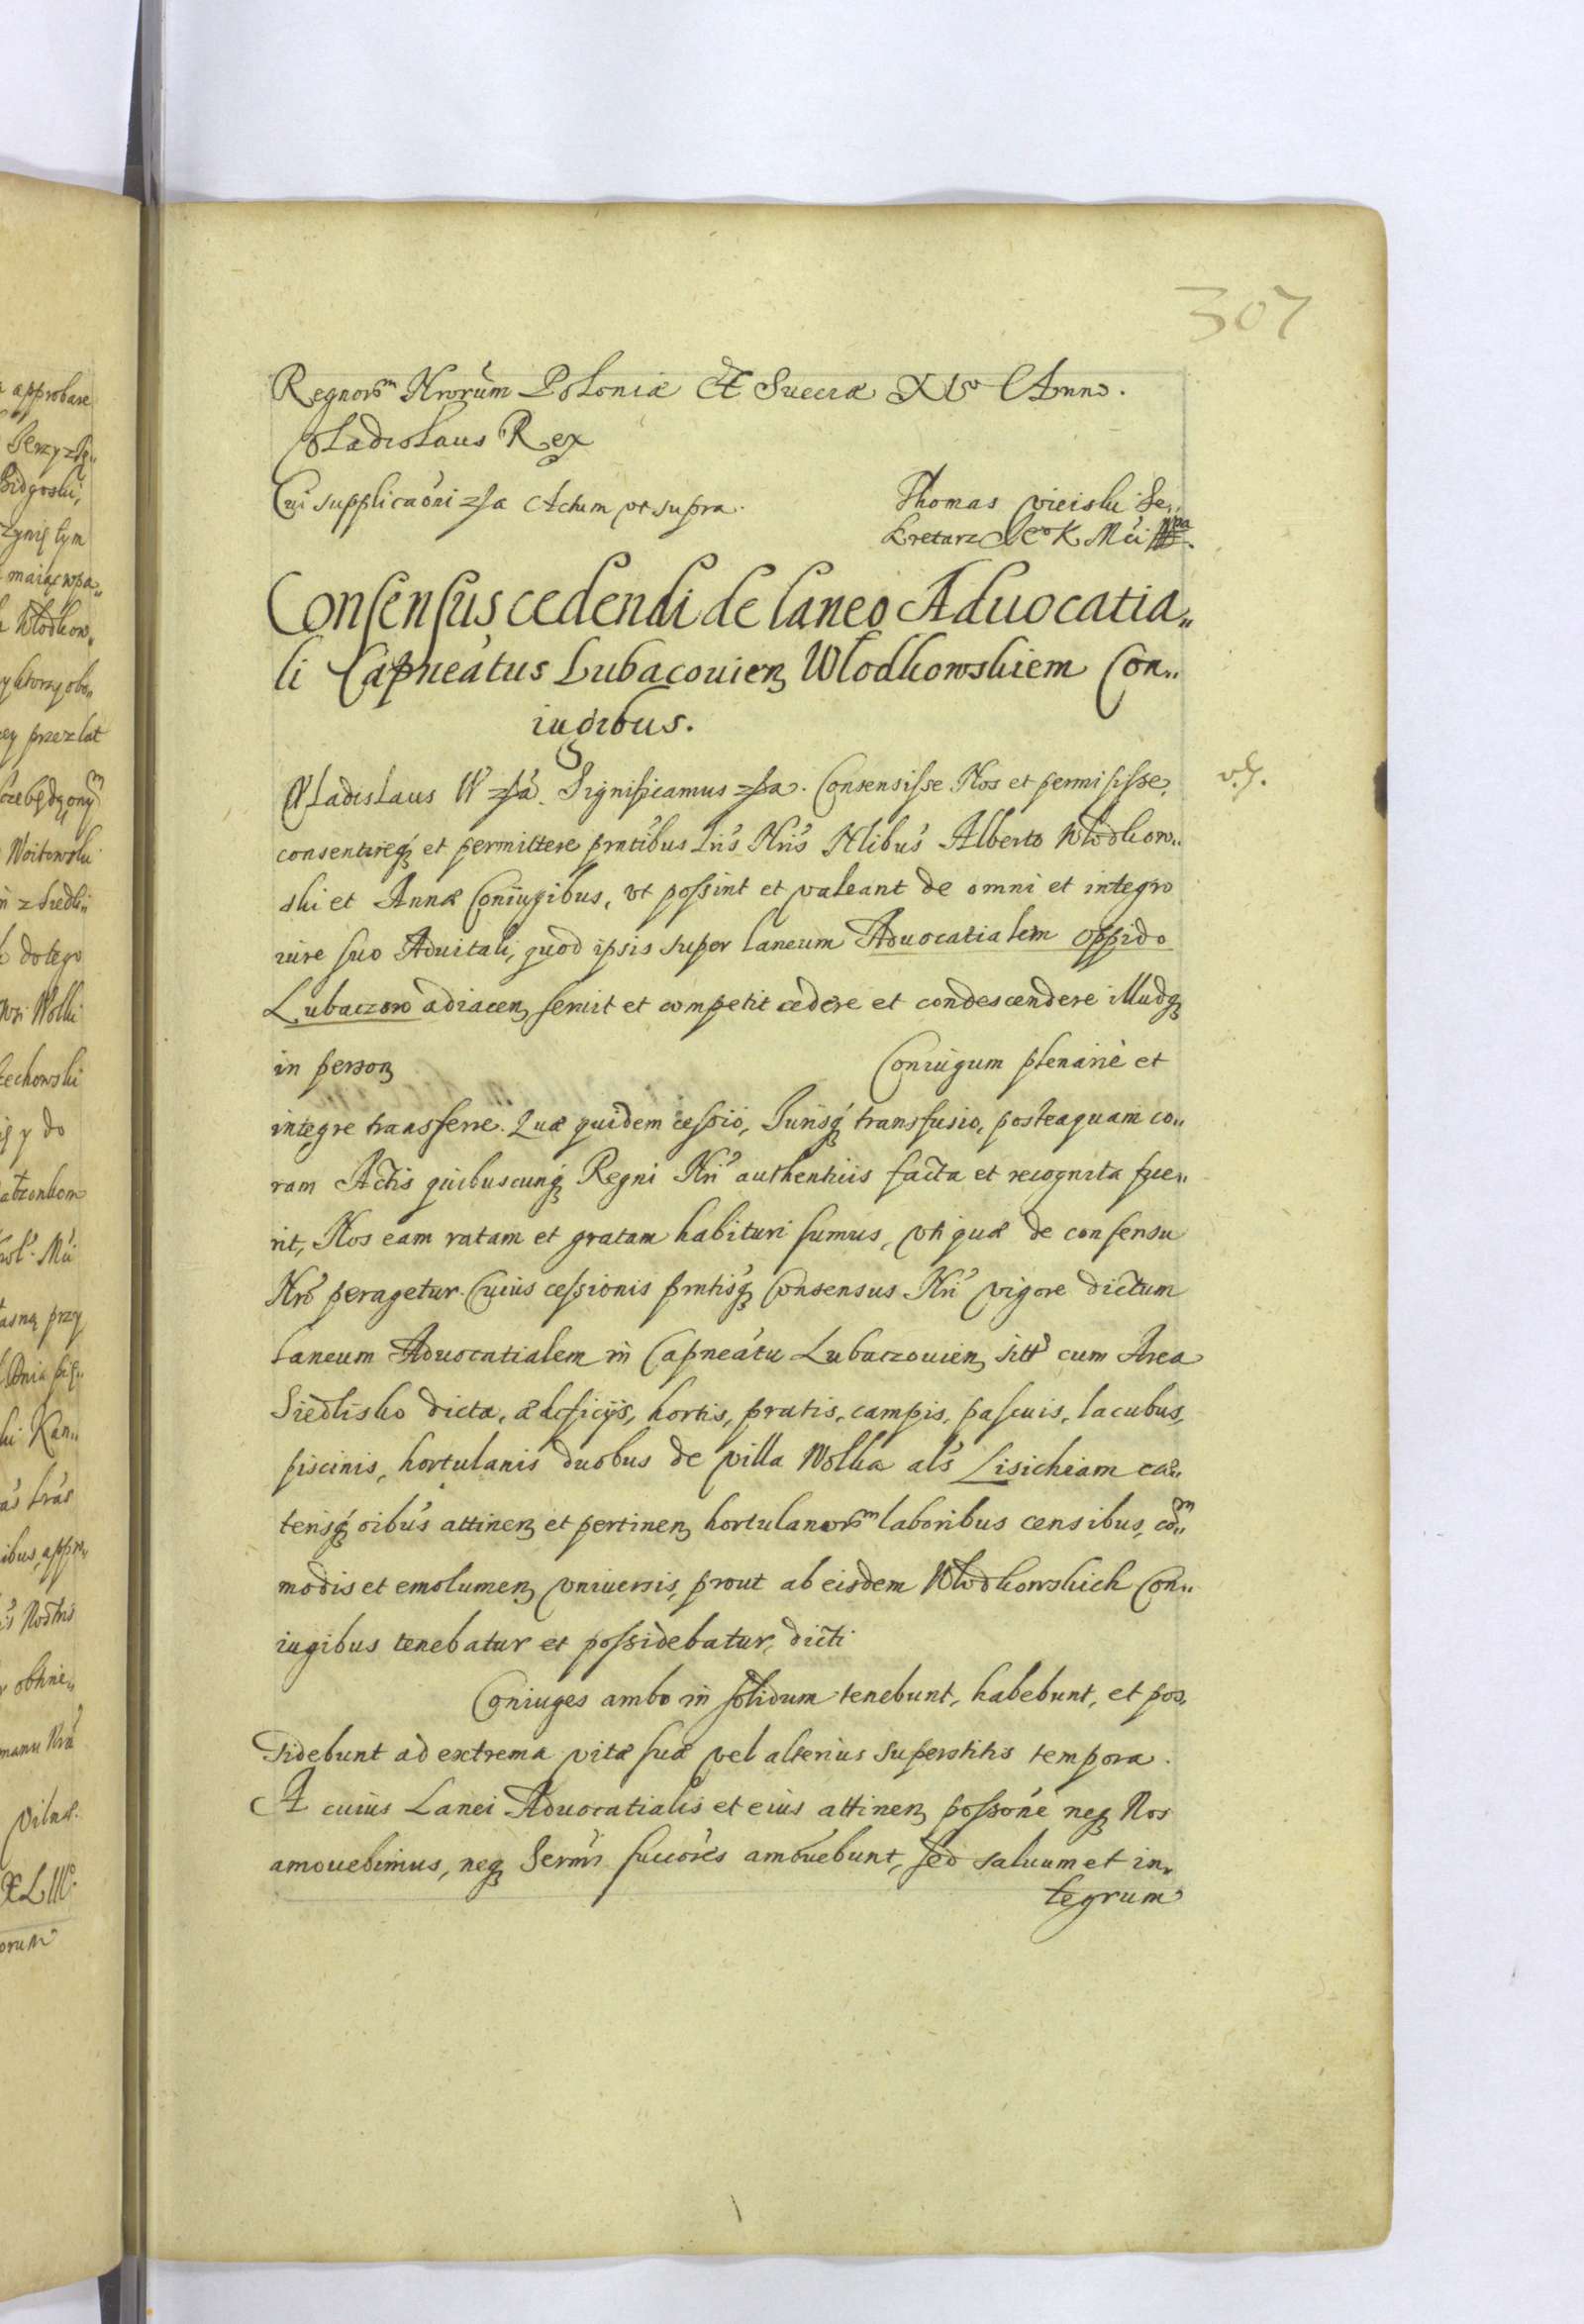 307
Regnor͞m Nrorum Poloniæ et Sueciæ XIo Anno.
Vladislaus Rex
Cui supplicaoni zſa Actum vt supra. Thomas vieiski Se„
kretarz Je° K Mci
Consensus cedendi de laneo Aduocatia„
li Capneatus Lubacouien Wlodkowskiem Con„
iugibus.
Vladislaus IV zſa. Significamus zſa. Consensisse Nos et permisisse,
v.s.
consentireq et permittere prntibus Lris Nris Nlibus Alberto Wlodkow„
ski et Annæ Coniugibus, vt possint et valeant de omni et integro
iure suo Aduitali, quod ipsis super laneum Aduocatialem oppido
Lubaczow adiacen seruit et competit cedere et condescendere illudq
in person Coniugum plenarie et
integre transferre. Quæ quidem cessio, Jurisq transfusio, posteaquam co„
ram Actis quibuscunq Regni Nri authenticis facta et recognita fue„
rit, Nos eam ratam et gratam habituri sumus, vti quæ de consensu
Nro peragetur. Cuius cessionis prntisq Consensus Nri vigore dictum
laneum Aduocatialem in Capneatu Lubaczouien sitt cum Area
Siedlisko dicta, ædificijs, hortis, pratis, campis, pascuis, lacubus,
piscinis, hortulanis duobus de villa Wolka als Lisichiam cæ„
terisq oibus attinen et pertinen hortulanor͞m laboribus censibus, com„
modis et emolumen vniuersis, prout ab eisdem Wlodkowskich Con„
iugibus tenebatur et possidebatur, dicti
Coniuges ambo in solidum tenebunt, habebunt, et pos„
sidebunt ad extrema vitæ suæ vel alterius superstitis tempora.
A cuius Lanei Aduocatialis et eius attinen possone neq Nos
amouebimus, neq Sermi succores amouebunt, sed saluum et in„
tegrum